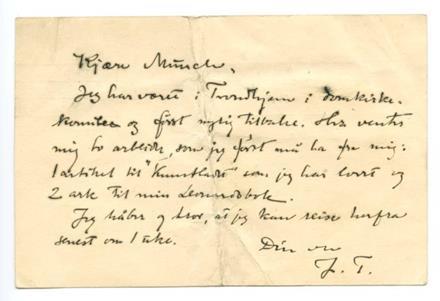 Kjære Munch,
Jeg har været i Trondhjem i domkirke-
komite og først nylig tilbake. Her venter
mig to arbeider, som jeg først må ha fra mig:
1 artikel til "Kunstbladet" som jeg har lovet og
2 ark til min Leonardobok.
Jeg håber og tror, at jeg kan reise herfra
senest om 1 uke.
Din ven
J. T.